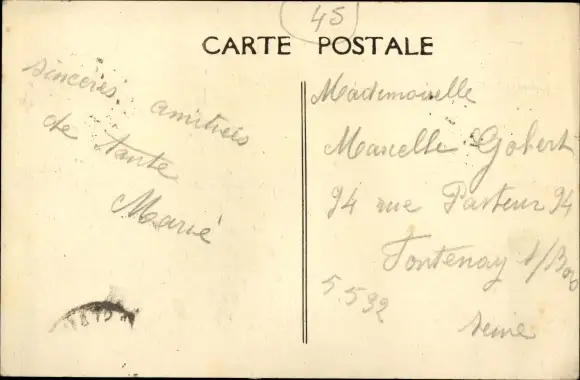 45
CARTE POSTALE
Sincères amitiés
de tante
Marie
Mademoiselle
Marcelle Gobert
94 rue Pasteur 94
Fontenay s/Bois
Seine
5532